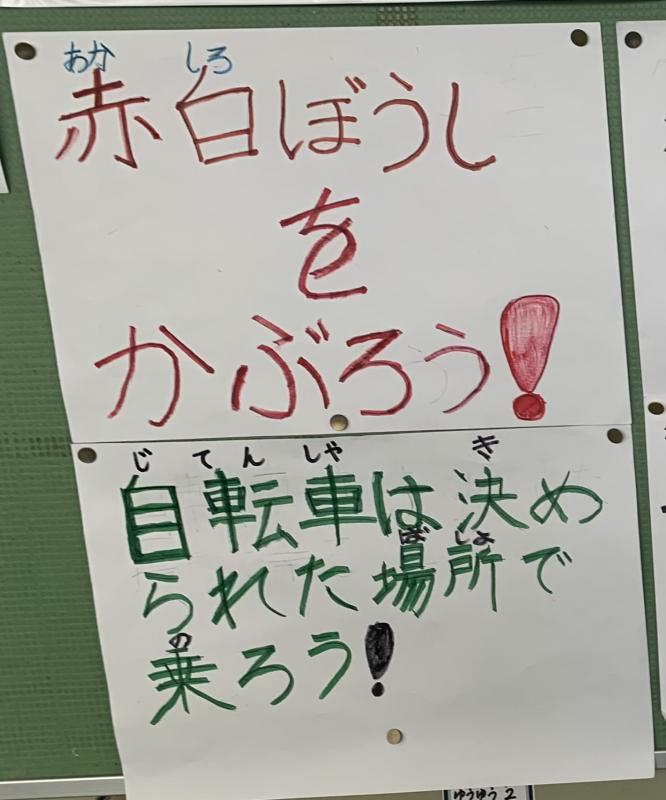 あか しろ
赤白ぼうし
を
かぶろう!
じてんしゃ き
自転車は決め
ばしょ
られた場所で
の
乗ろう!
ゆうゆう2